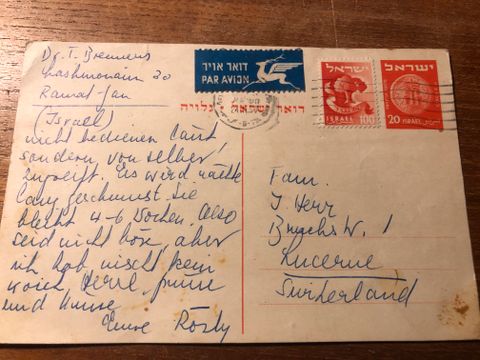 Dr. T. Brenners
Hashmonaim 30
Ramat-Gan
(Israel)
nicht bedienen lässt
sondern von selber
zugreift. Es wird nächte
lang geschmust. Sie
bleibt 4-6 Wochen. Also
seid nicht böse, aber
ich hab nicht kein
Grüsse
und Küsse
Eure Rösly
דואר אויר
PAR AVION
דואר ישראל · גלויה
ישראל
ISRAEL 100
ישראל
20 ISRAEL ישראל
Fam.
J. Herz
Lucerne
Switzerland